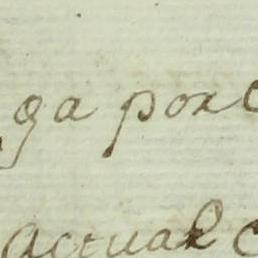 ga por
actual